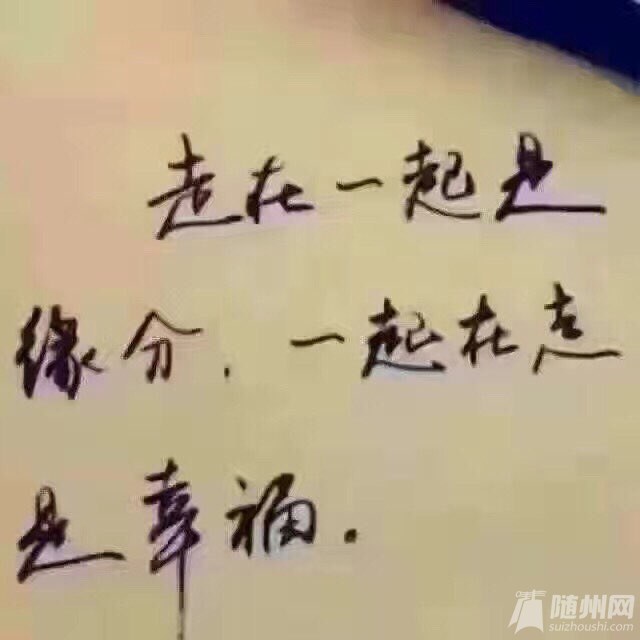 走在一起是
缘分，一起在走
是幸福.
随州网
suizhoushi.com